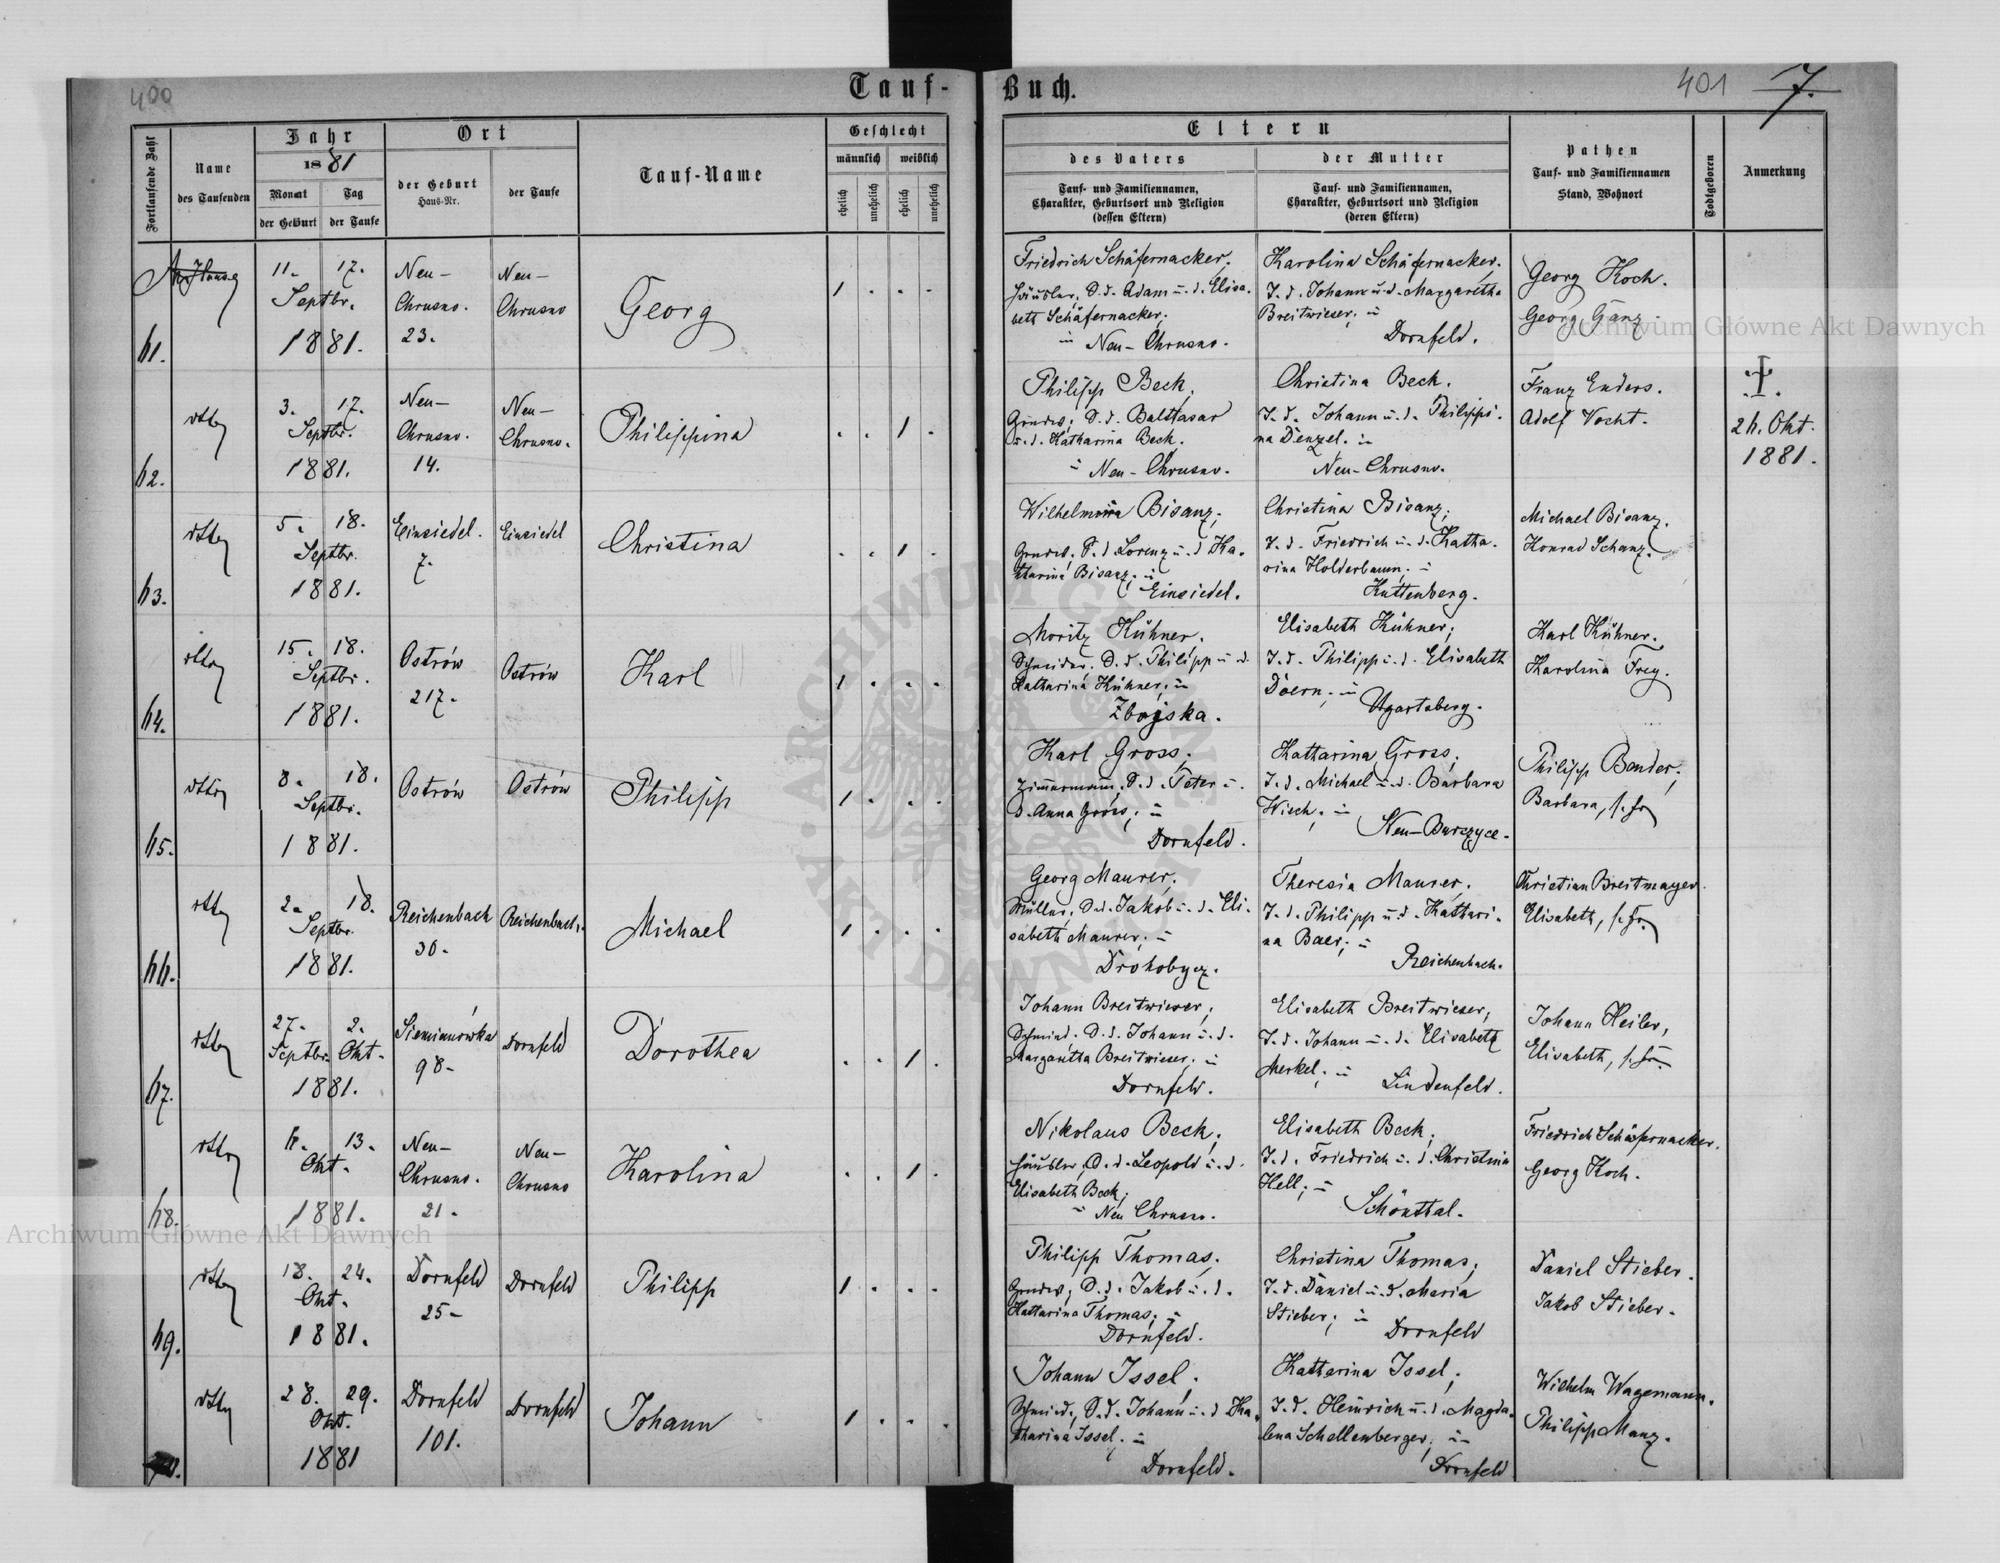 400
Tauf-
Buch.
401
7.
Fortlaufende Zahl
Name
des Taufenden
Jahr
1881
Monat
Tag
der Geburt
der Taufe
Ort
der Geburt
Haus-Nr.
der Taufe
Tauf-Name
Geschlecht
männlich
weiblich
ehelich
unehelich
ehelich
unehelich
Eltern
des Vaters
Tauf- und Familiennamen,
Charakter, Geburtsort und Religion
(dessen Eltern)
der Mutter
Tauf- und Familiennamen,
Charakter, Geburtsort und Religion
(deren Eltern)
Pathen
Tauf- und Familiennamen
Stand, Wohnort
Todtgeboren
Anmerkung
61.
11. 17.
Septbr.
1881.
Neu-
Chrusno.
23.
Neu-
Chrusno
Georg
1 . . .
Friedrich Schäfernacker,
Häusler, S. d. Adam u. d. Elisa-
beth Schäfernacker;
in Neu-Chrusno.
Karolina Schäfernacker,
T. d. Johann u. d. Margaretha
Breitwieser; in
Dornfeld.
Georg Koch.
Georg Ganz.
62.
3. 17.
Septbr.
1881.
Neu-
Chrusno.
14.
Neu-
Chrusno.
Philippina
. . 1 .
Philipp Beck,
Grundw; S. d. Balthasar
u. d. Katharina Beck.
in Neu-Chrusno.
Christina Beck.
T. d. Johann u. d. Philippi-
na Denzel. in
Neu-Chrusno.
Franz Enders.
Adolf Vocht.
†.
26. Okt.
1881.
63.
5. 18.
Septbr.
1881.
Einsiedel.
7.
Einsiedel
Christina
. . 1 .
Wilhelm Bisanz,
Grundw. S. d. Lorenz u. d. Ka-
tharina Bisanz; in
Einsiedel.
Christina Bisanz;
T. d. Friedrich u. d. Katha-
rina Holderbaum; in
Kuttenberg.
Michael Bisanz.
Konrad Schanz.
64.
15. 18.
Septbr.
1881.
Ostrów
217.
Ostrów
Karl
1 . . .
Moritz Kühner.
Schneider. S. d. Philipp u. d.
Katharina Kühner; in
Zboiska.
Elisabeth Kühner;
T. d. Philipp u. d. Elisabeth
Doern; in
Ugartsberg.
Karl Kühner.
Karolina Frey.
65.
8. 18.
Septbr.
1881.
Ostrów
Ostrów
Philipp
1 . . .
Karl Gross,
Zimmermann, S. d. Peter u.
d. Anna Gross; in
Dornfeld.
Katharina Gross,
T. d. Michael u. d. Barbara
Wiech; in
Neu-Burczyce.
Philipp Bender,
Barbara, s. Fr.
66.
2. 18.
Septbr.
1881.
Reichenbach
30.
Reichenbach.
Michael
1 . . .
Georg Maurer;
Müller, S. d. Jakob u. d. Eli-
sabeth Maurer; in
Drohobycz.
Theresia Maurer,
T. d. Philipp u. d. Kathari-
na Baer; in
Reichenbach.
Christian Breitmayer.
Elisabeth, s. Fr.
67.
27. 2.
Septbr. Okt.
1881.
Siemianówka
98.
Dornfeld
Dorothea
. . 1 .
Johann Breitwieser,
Schmied. S. d. Johann u. d.
Margaretha Breitwieser; in
Dornfeld.
Elisabeth Breitwieser;
T. d. Johann u. d. Elisabeth
Merkel; in
Lindenfeld.
Johann Heiler,
Elisabeth, s. Fr.
68.
6. 13.
Okt.
1881.
Neu-
Chrusno.
21.
Neu-
Chrusno
Karolina
. . 1 .
Nikolaus Beck;
Häusler, S. d. Leopold u. d.
Elisabeth Beck,
in Neu Chrusno.
Elisabeth Beck,
T. d. Friedrich u. d. Christina
Hell; in
Schönthal.
Friedrich Schäfernacker.
Georg Koch.
69.
18. 24.
Okt.
1881.
Dornfeld
25.
Dornfeld
Philipp
1 . . .
Philipp Thomas,
Grundw; S. d. Jakob u. d.
Katharina Thomas; in
Dornfeld.
Christina Thomas;
T. d. Daniel u. d. Maria
Stieber; in
Dornfeld
Daniel Stieber.
Jakob Stieber.
28. 29.
Okt.
1881
Dornfeld
101.
Dornfeld
Johann
1 . . .
Johann Issel,
Schmied, S. d. Johann u. d. Ka-
tharina Issel. in
Dornfeld.
Katharina Issel;
T. d. Heinrich u. d. Magda-
lena Schellenberger; in
Dornfeld
Wilhelm Wagemann.
Philipp Manz.
Archiwum Główne Akt Dawnych
Archiwum Główne Akt Dawnych
ARCHIWUM GŁÓWNE AKT DAWNYCH